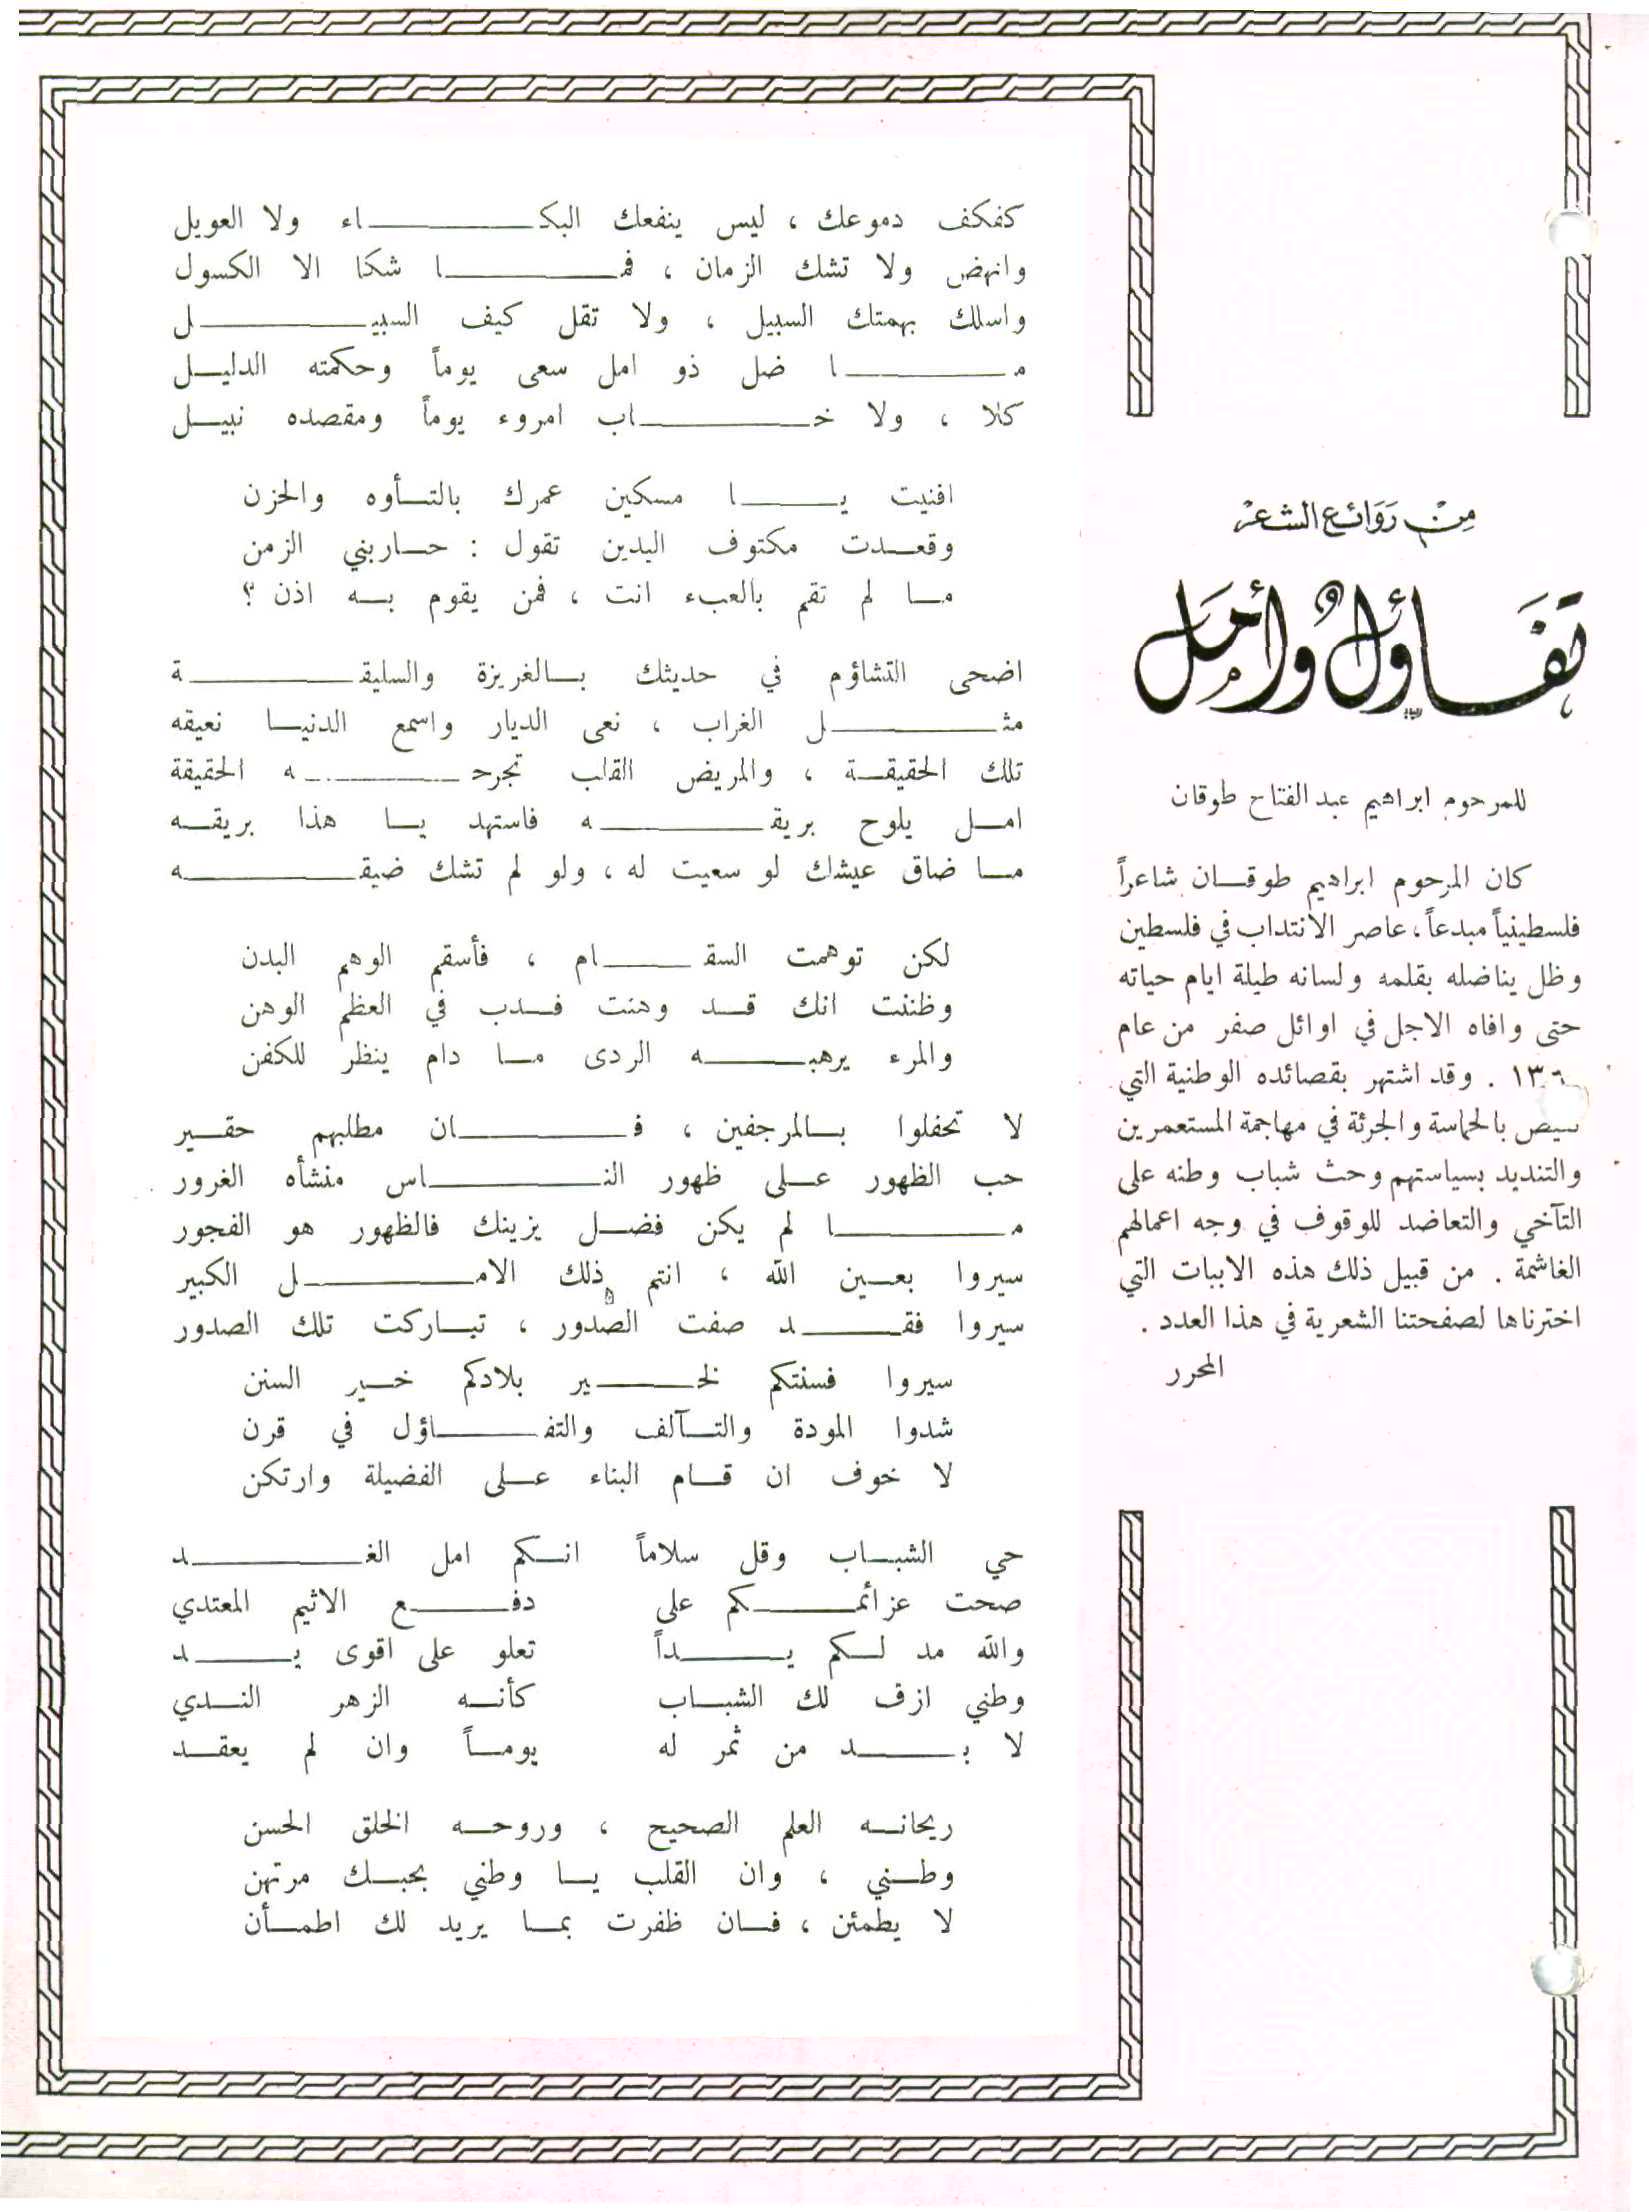 من روائع الشعر
تفاؤل وأمل
للمرحوم ابراهيم عبد الفتاح طوقان
كان المرحوم ابراهيم طوقان شاعراً
فلسطينياً مبدعاً، عاصر الانتداب في فلسطين
وظل يناضله بقلمه ولسانه طيلة ايام حياته
حتى وافاه الاجل في اوائل صفر من عام
. وقد اشتهر بقصائده الوطنية التي
بالحماسة والجرئة في مهاجمة المستعمرين
والتنديد بسياستهم وحث شباب وطنه على
التآخي والتعاضد للوقوف في وجه اعمالهم
الغاشمة . من قبيل ذلك هذه الابيات التي
اخترناها لصفحتنا الشعرية في هذا العدد .
المحرر
كفكف دموعك ، ليس ينفعك البكاء ولا العويل
وانهض ولا تشك الزمان ، فما شكا الا الكسول
واسلك بهمتك السبيل ، ولا تقل كيف السبيل
ما ضل ذو امل سعى يوماً وحكمته الدليل
كلا ، ولا خاب امروء يوماً ومقصده نبيل
افنيت يا مسكين عمرك بالتأوه والحزن
وقعدت مكتوف اليدين تقول : حاربني الزمن
ما لم تقم بالعبء انت ، فمن يقوم به اذن ؟
اضحى التشاؤم في حديثك بالغريزة والسليقة
مثل الغراب ، نعى الديار واسمع الدنيا نعيقه
تلك الحقيقة ، والمريض القلب تجرحه الحقيقة
امل يلوح بريقه فاستهد يا هذا بريقه
ما ضاق عيشك لو سعيت له ، ولو لم تشك ضيقه
لكن توهمت السقام ، فأسقم الوهم البدن
وظننت انك قد وهنت فدب في العظم الوهن
والمرء يرهبه الردى ما دام ينظر للكفن
لا تحفلوا بالمرجفين ، فان مطلبهم حقير
حب الظهور على ظهور الناس منشأه الغرور
ما لم يكن فضل يزينك فالظهور هو الفجور
سيروا بعين الله ، انتم ذلك الامل الكبير
سيروا فقد صفت الصدور ، تباركت تلك الصدور
سيروا فسنتكم لخير بلادكم خير السنن
شدوا المودة والتآلف والتفاؤل في قرن
لا خوف ان قام البناء على الفضيلة وارتكن
حي الشباب وقل سلاماً انكم امل الغد
صحت عزائمكم على دفع الاثيم المعتدي
والله مد لكم يداً تعلو على اقوى يد
وطني ازف لك الشباب كأنه الزهر الندي
لا بد من ثمر له يوماً وان لم يعقد
ريحانه العلم الصحيح ، وروحه الخلق الحسن
وطني ، وان القلب يا وطني بحبك مرتهن
لا يطمئن ، فان ظفرت بما يريد لك اطمأن